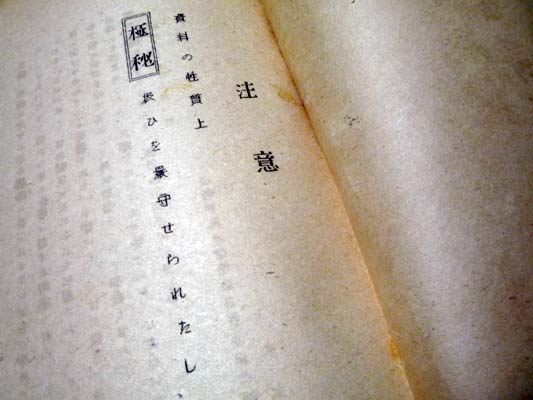 注意
資料の性質上
極秘
扱ひを厳守せられたし、